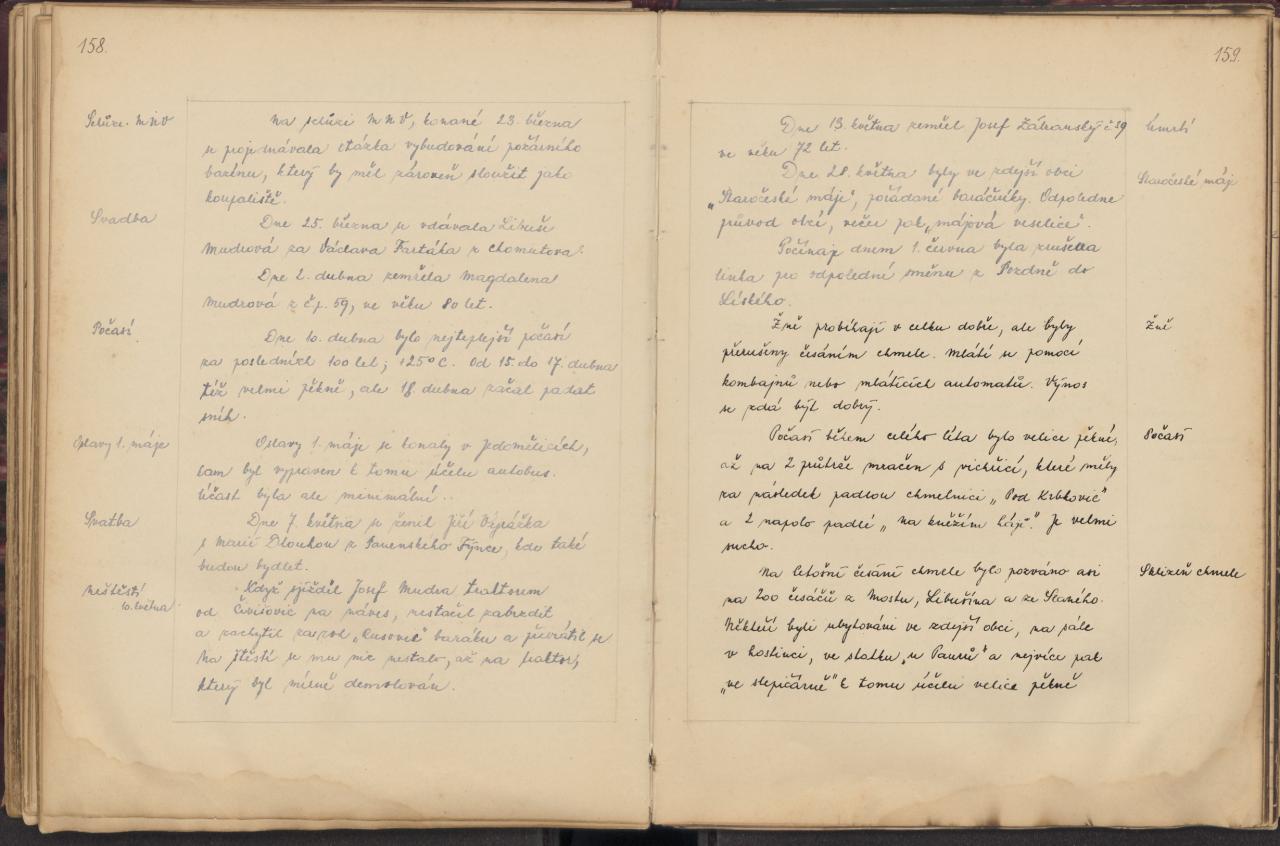 158.
Schůze. MNV
Na schůzi MNV, konané 23. března
se projednávala otázka vybudování požárního
bazénu, který by měl zároveň sloužit jako
koupaliště.
Svadba
Dne 25. března se vdávala Libuše
Mudrová za Václava Fartáka z Chomutova.
Dne 2. dubna zemřela Magdalena
Mudrová z čp. 59, ve věku 80 let.
Počasí
Dne 10. dubna bylo nejteplejší počasí
za posledních 100 let; +25°C. Od 15. do 17. dubna
též velmi pěkně, ale 18. dubna začal padat
sníh.
Oslavy 1. máje
Oslavy 1. máje se konaly v Jedomělicích,
kam byl vypraven k tomu účelu autobus.
Účast byla ale minimální..
Svatba
Dne 7. května se ženil Jiří
s Marií Dlouhou z Panenského Týnce, kde také
budou bydlet.
Neštěstí
10. května
Když sjížděl Josef Mudra traktorem
od Čivišovic na náves, nestačil zabrzdit
a zachytil za roh baráku a převrátil se
Na štěstí se mu nic nestalo, až na traktor,
který byl mírně demolován.
159.
Dne 13. května zemřel Josef Zákranský č 59
ve věku 72 let.
Úmrtí
Dne 28. května byly ve zdejší obci
Staročeské máje
„Staročeské máje", pořádané baráčníky. Odpoledne
průvod obcí, večer pak „májová veselice".
Počínaje dnem 1. června byla zrušena
linka pro odpolední směnu z Pozdně do
Libského.
Žně probíhají v celku dobře, ale byly
Žně
přerušeny česáním chmele. Mlátí se pomocí
kombajnů nebo mlátících automatů. Výnos
se zdá být dobrý.
Počasí během celého léta bylo velice pěkné,
Počasí
až na 2 průtrže mračen s vichřicí, které měly
za následek padlou chmelnici „Pod Krbkovic"
a 2 napolo padlé „na kněžím háji." Je velmi
sucho.
Na letošní česání chmele bylo pozváno asi
Sklizeň chmele
na 200 česáčů z Mostu, Libušína a ze Slaného.
Někteří byli ubytováni ve zdejší obci, na sále
v hostinci, ve statku „u Paurů" a nejvíce pak
„ve slepičárně" k tomu účelu velice pěkně